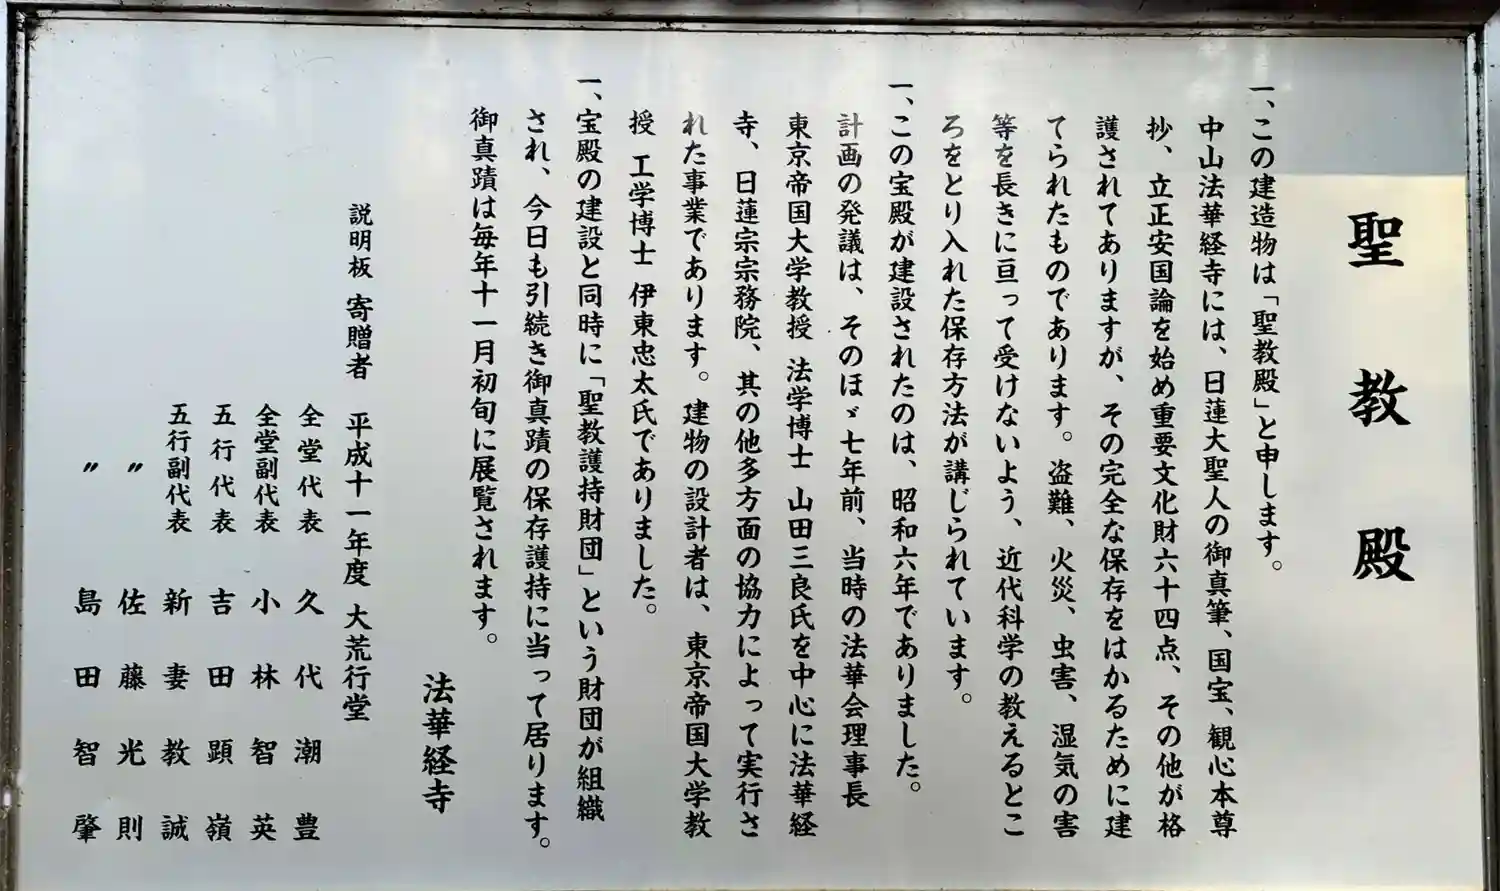 聖教殿
一、この建造物は「聖教殿」と申します。
中山法華経寺には、日蓮大聖人の御真筆、国宝、観心本尊
抄、立正安国論を始め重要文化財六十四点、その他が格
護されてありますが、その完全な保存をはかるために建
てられたものであります。盗難、火災、虫害、湿気の害
等を長きに亘って受けないよう、近代科学の教えるとこ
ろをとり入れた保存方法が講じられています。
一、この宝殿が建設されたのは、昭和六年でありました。
計画の発議は、そのほゞ七年前、当時の法華会理事長
東京帝国大学教授 法学博士 山田三良氏を中心に法華経
寺、日蓮宗宗務院、其の他多方面の協力によって実行さ
れた事業であります。建物の設計者は、東京帝国大学教
授 工学博士 伊東忠太氏でありました。
一、宝殿の建設と同時に「聖教護持財団」という財団が組織
され、今日も引続き御真蹟の保存護持に当って居ります。
御真蹟は毎年十一月初旬に展覧されます。
法華経寺
説明板 寄贈者 平成十一年度 大荒行堂
全堂代表 久代潮豊
全堂副代表 小林智英
五行代表 吉田顕嶺
五行副代表 新妻教誠
〃 佐藤光則
〃 島田智肇